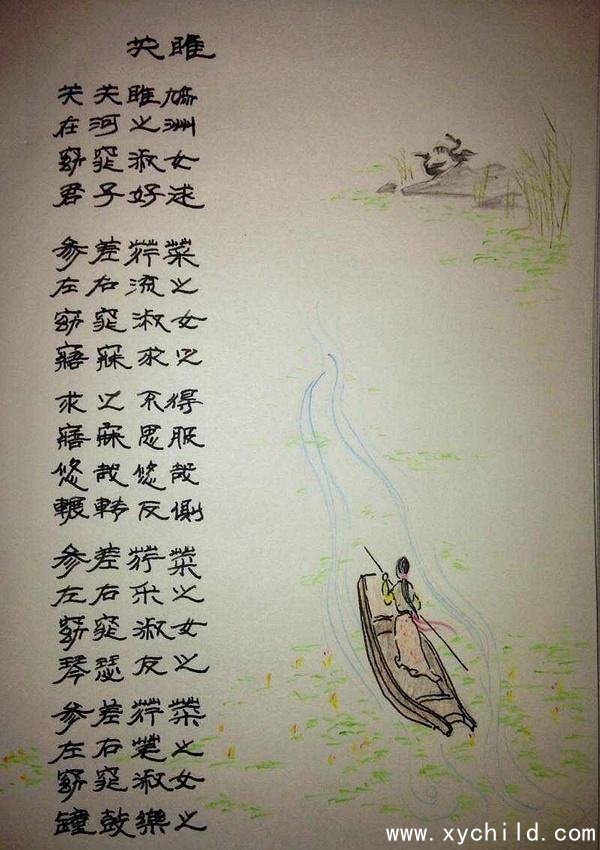 关雎
关关雎鸠
在河之洲
窈窕淑女
君子好逑
参差荇菜
左右流之
窈窕淑女
寤寐求之
求之不得
寤寐思服
悠哉悠哉
輾轉反側
参差荇菜
左右采之
窈窕淑女
琴瑟友之
参差荇菜
左右芼之
窈窕淑女
鐘鼓樂之
www.xychild.com